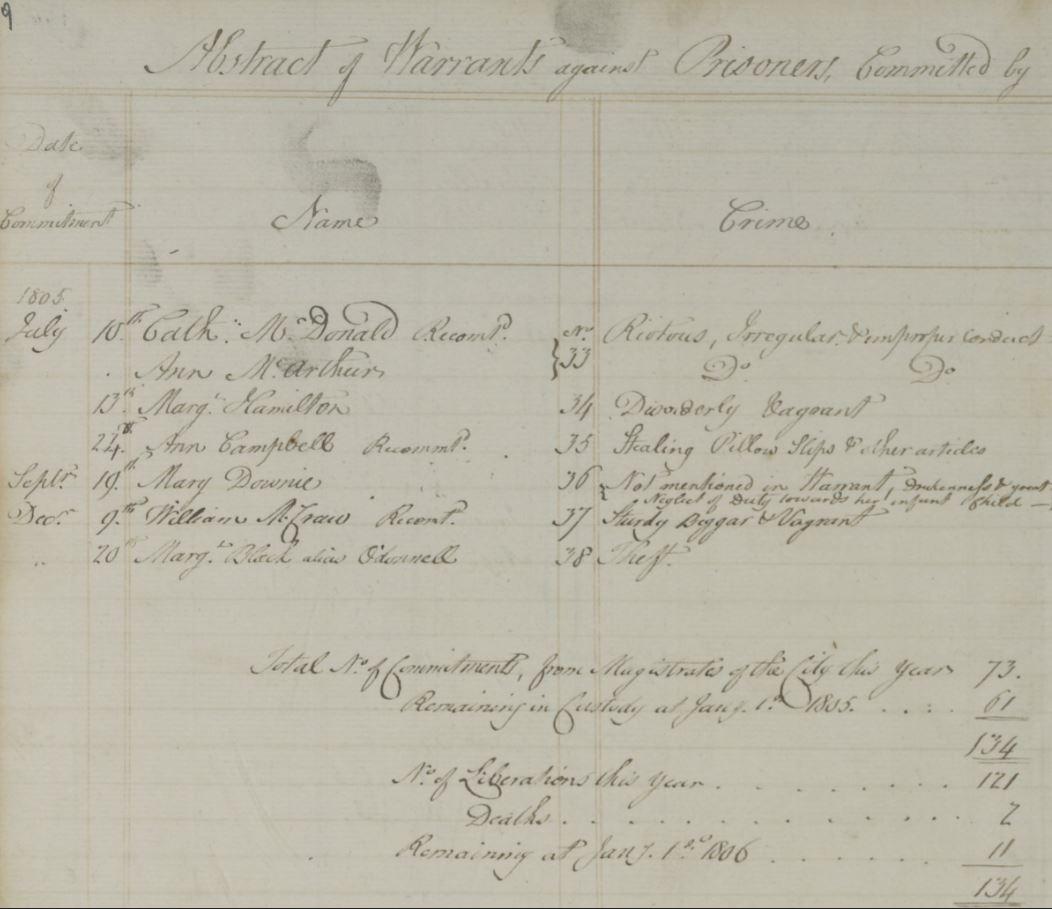 9
Abstract of Warrants against Prisoners, Committed by
Date
of
Commitment
Name
Crime
1805
July 10th Cath: Mc Donald Recomt. No. Riotous, Irregular & improper Conduct
Ann Mc arthur 33 Do Do
13th Margt Hamilton 34 Disorderly Vagrant
24th Ann Campbell Recommt. 35 Stealing Pillow Slips & other articles
Septr 19th Mary Downie 36 Not mentioned in Warrant, Drukenness & great
Neglect of Duty towards her infant Child —
Decr 9th William McCraw Recomt. 37 Sturdy Beggar & Vagrant
„ 20th Margt Black alias Odonnell 38 Theft.
Total No. of Commitments, from Magistrates of the City this Year 73.
Remaining in Custody at Jany. 1st 1805. . . . . 61
134
No. of Liberations this Year . . . . . . . 121
Deaths . . . . . . . . . . . 2
Remaining at Jany. 1st 1806 . . . . . . . 11
134